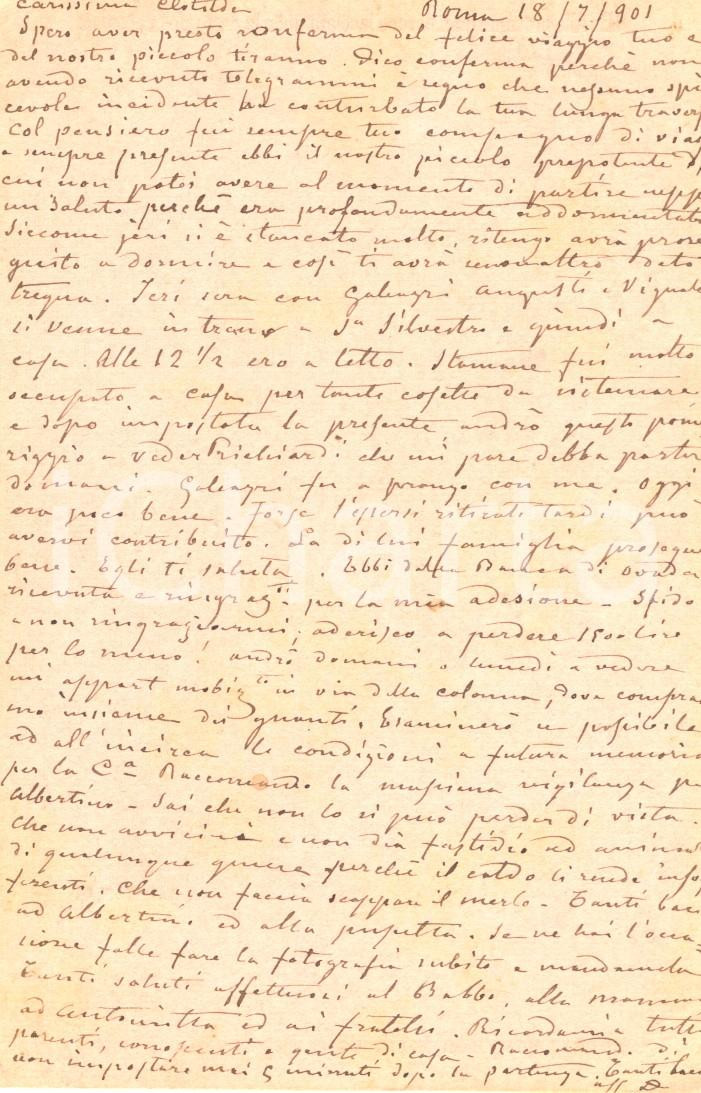 Carissima Clotilde Roma 18/7/901
Spero aver presto conferma del felice viaggio tuo e
del nostro piccolo tiranno. Dico conferma perchè non
avendo ricevuto telegrammi è segno che nessuno spi
cevole incidente ha conturbato la tua lunga traver
Col pensiero fui sempre tuo compagno di viag
e sempre presente ebbi il nostro piccolo prepotente d
cui non potei avere al momento di partire nepp
un saluto perchè era profondamente addormentato
Siccome jeri si è stancato molto, ritengo avrà prose
guito a dormire e così ti avrà senonaltro dato
tregua. Jeri sera con Galeazzi Augusti e Vignale
si venne in tram a Sn Silvestro e quindi a
casa. Alle 12 1/2 ero a letto. Stamane fui molto
occupato a casa per tante cosette da sistemare
e dopo impostata la presente andrò questo pom
riggio a veder Prichiardi che mi pare debba partir
domani. Galeazzi fu a pranzo con me. Oggi
era poco bene. Forse l'essersi ritirati tardi può
avervi contribuito. La di lui famiglia prosegue
bene. Egli ti saluta. Ebbi dalla Banca di Ovada
ricevuta e ringrazti per la mia adesione - Sfido
a non ringraziarmi; aderisco a perdere 1500 lire
per lo meno! andrò domani o lunedì a vedere
un appart mobigto in via della Colonna, dove compra
mo insieme dei guanti. Esaminerò se possibile
ed all'incirca le condizioni a futura memoria
per la Ca Raccomando la massima vigilanza pe
Albertino - Sai che non lo si può perder di vista.
Che non avvicini e non dia fastidio ad animal
di qualunque genere perchè il caldo li rende insof
ferenti. Che non faccia scappare il merlo - Tanti baci
ad Albertino ed alla pupetta. Se ne hai l'occa-
sione falle fare la fotografia subito e mandamela
Tanti saluti affettuosi al Babbo, alla mamma
ad Antonietta ed ai fratelli. Ricordami a tutti
parenti, conoscenti e gente di casa - Raccomando di
non impostare mai 5 minuti dopo la partenza. Tanti baci
aff